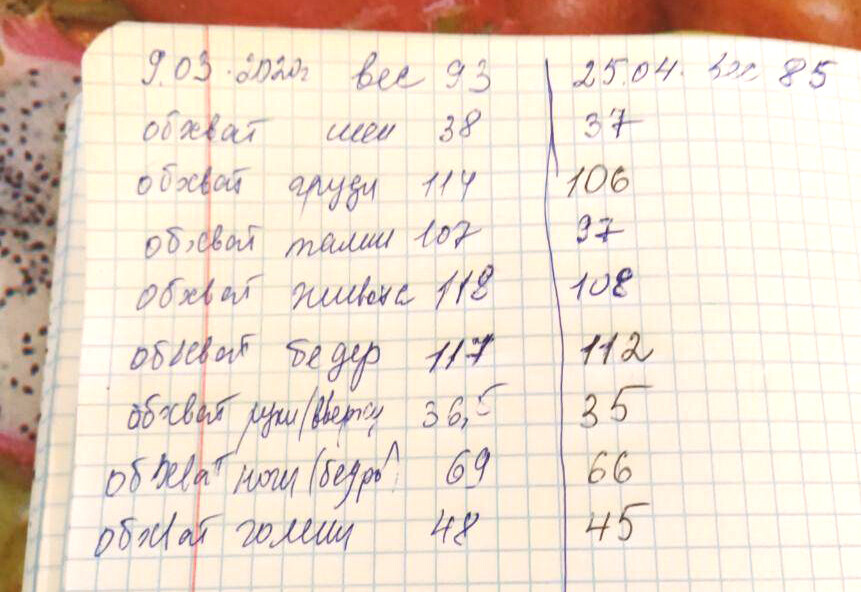 9.03.2020г вес 93 25.04. вес 85
обхват шеи 38 37
обхват груди 114 106
обхват талии 107 97
обхват живота 118 108
обхват бедер 117 112
обхват руки (вверху 36,5 35
обхват ноги (бедро) 69 66
обхват голени 48 45